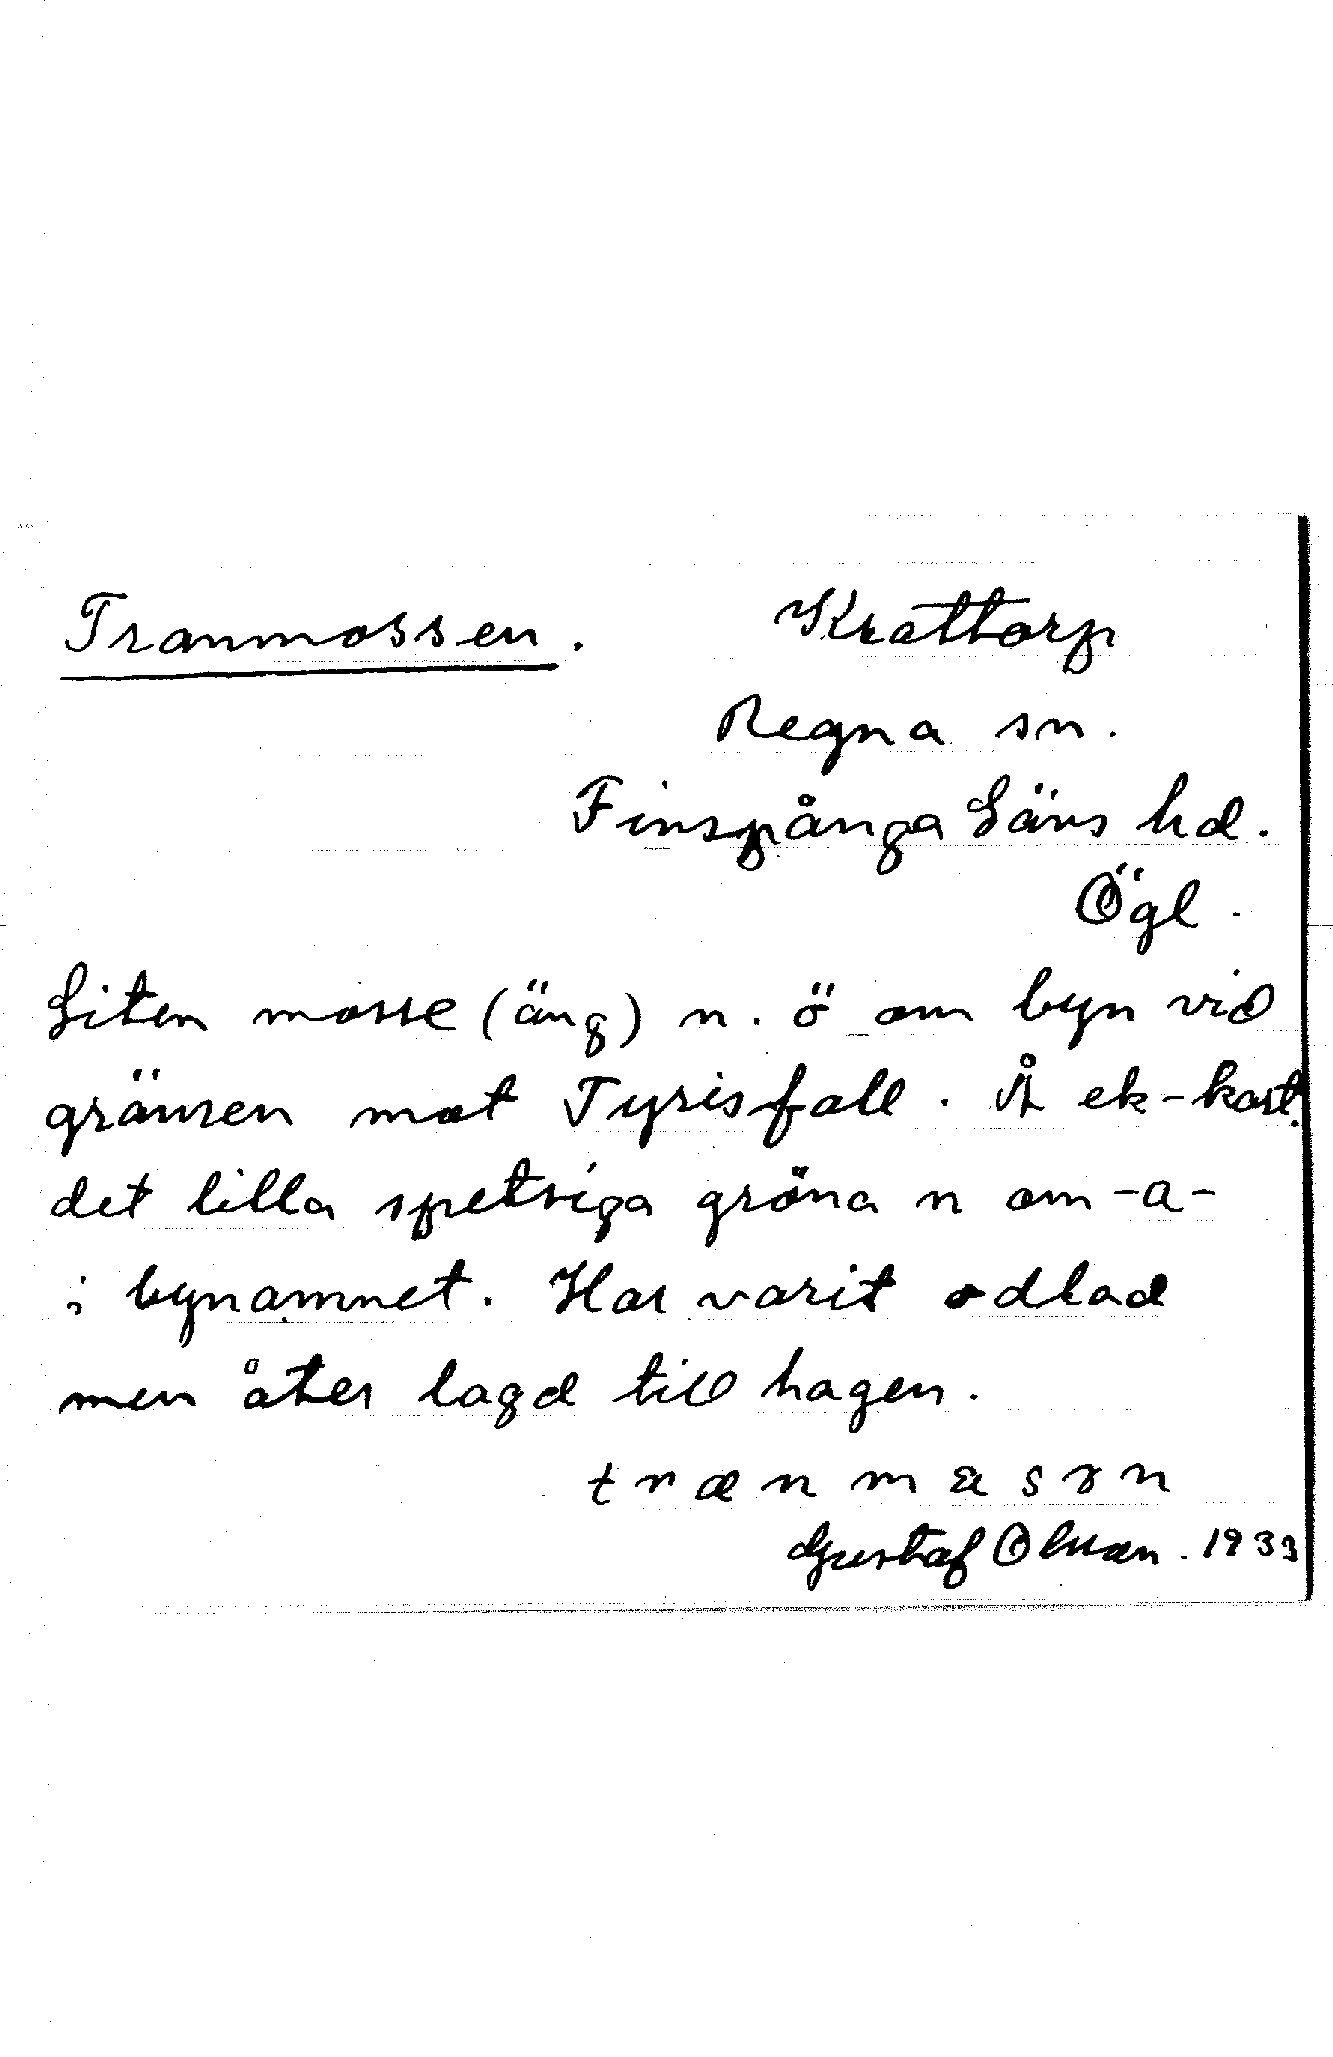 Tranmossen. Krattorp
Regna sn.
Finspånga Läns hd.
Ögl.
Liten mosse (äng) n. ö om byn vid
gränsen mot Tyrisfall. Å ek-kart.
det lilla spetsiga gröna n om -a-
i bynamnet. Har varit odlad
men åter lagd till hagen.
Gustaf Olsson. 1933